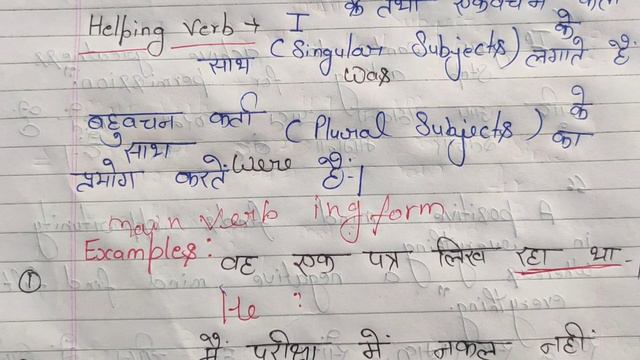 के तथा एकवचन कर्ता
Helping verb → I
के साथ (Singular Subjects) लगाते हैं
was
बहुवचन कर्ता (Plural Subjects) के
साथ were का
प्रयोग करते हैं।
main verb ing form
Examples:
① वह एक पत्र लिख रहा था -
He ?
मैं परीक्षा में नकल नहीं